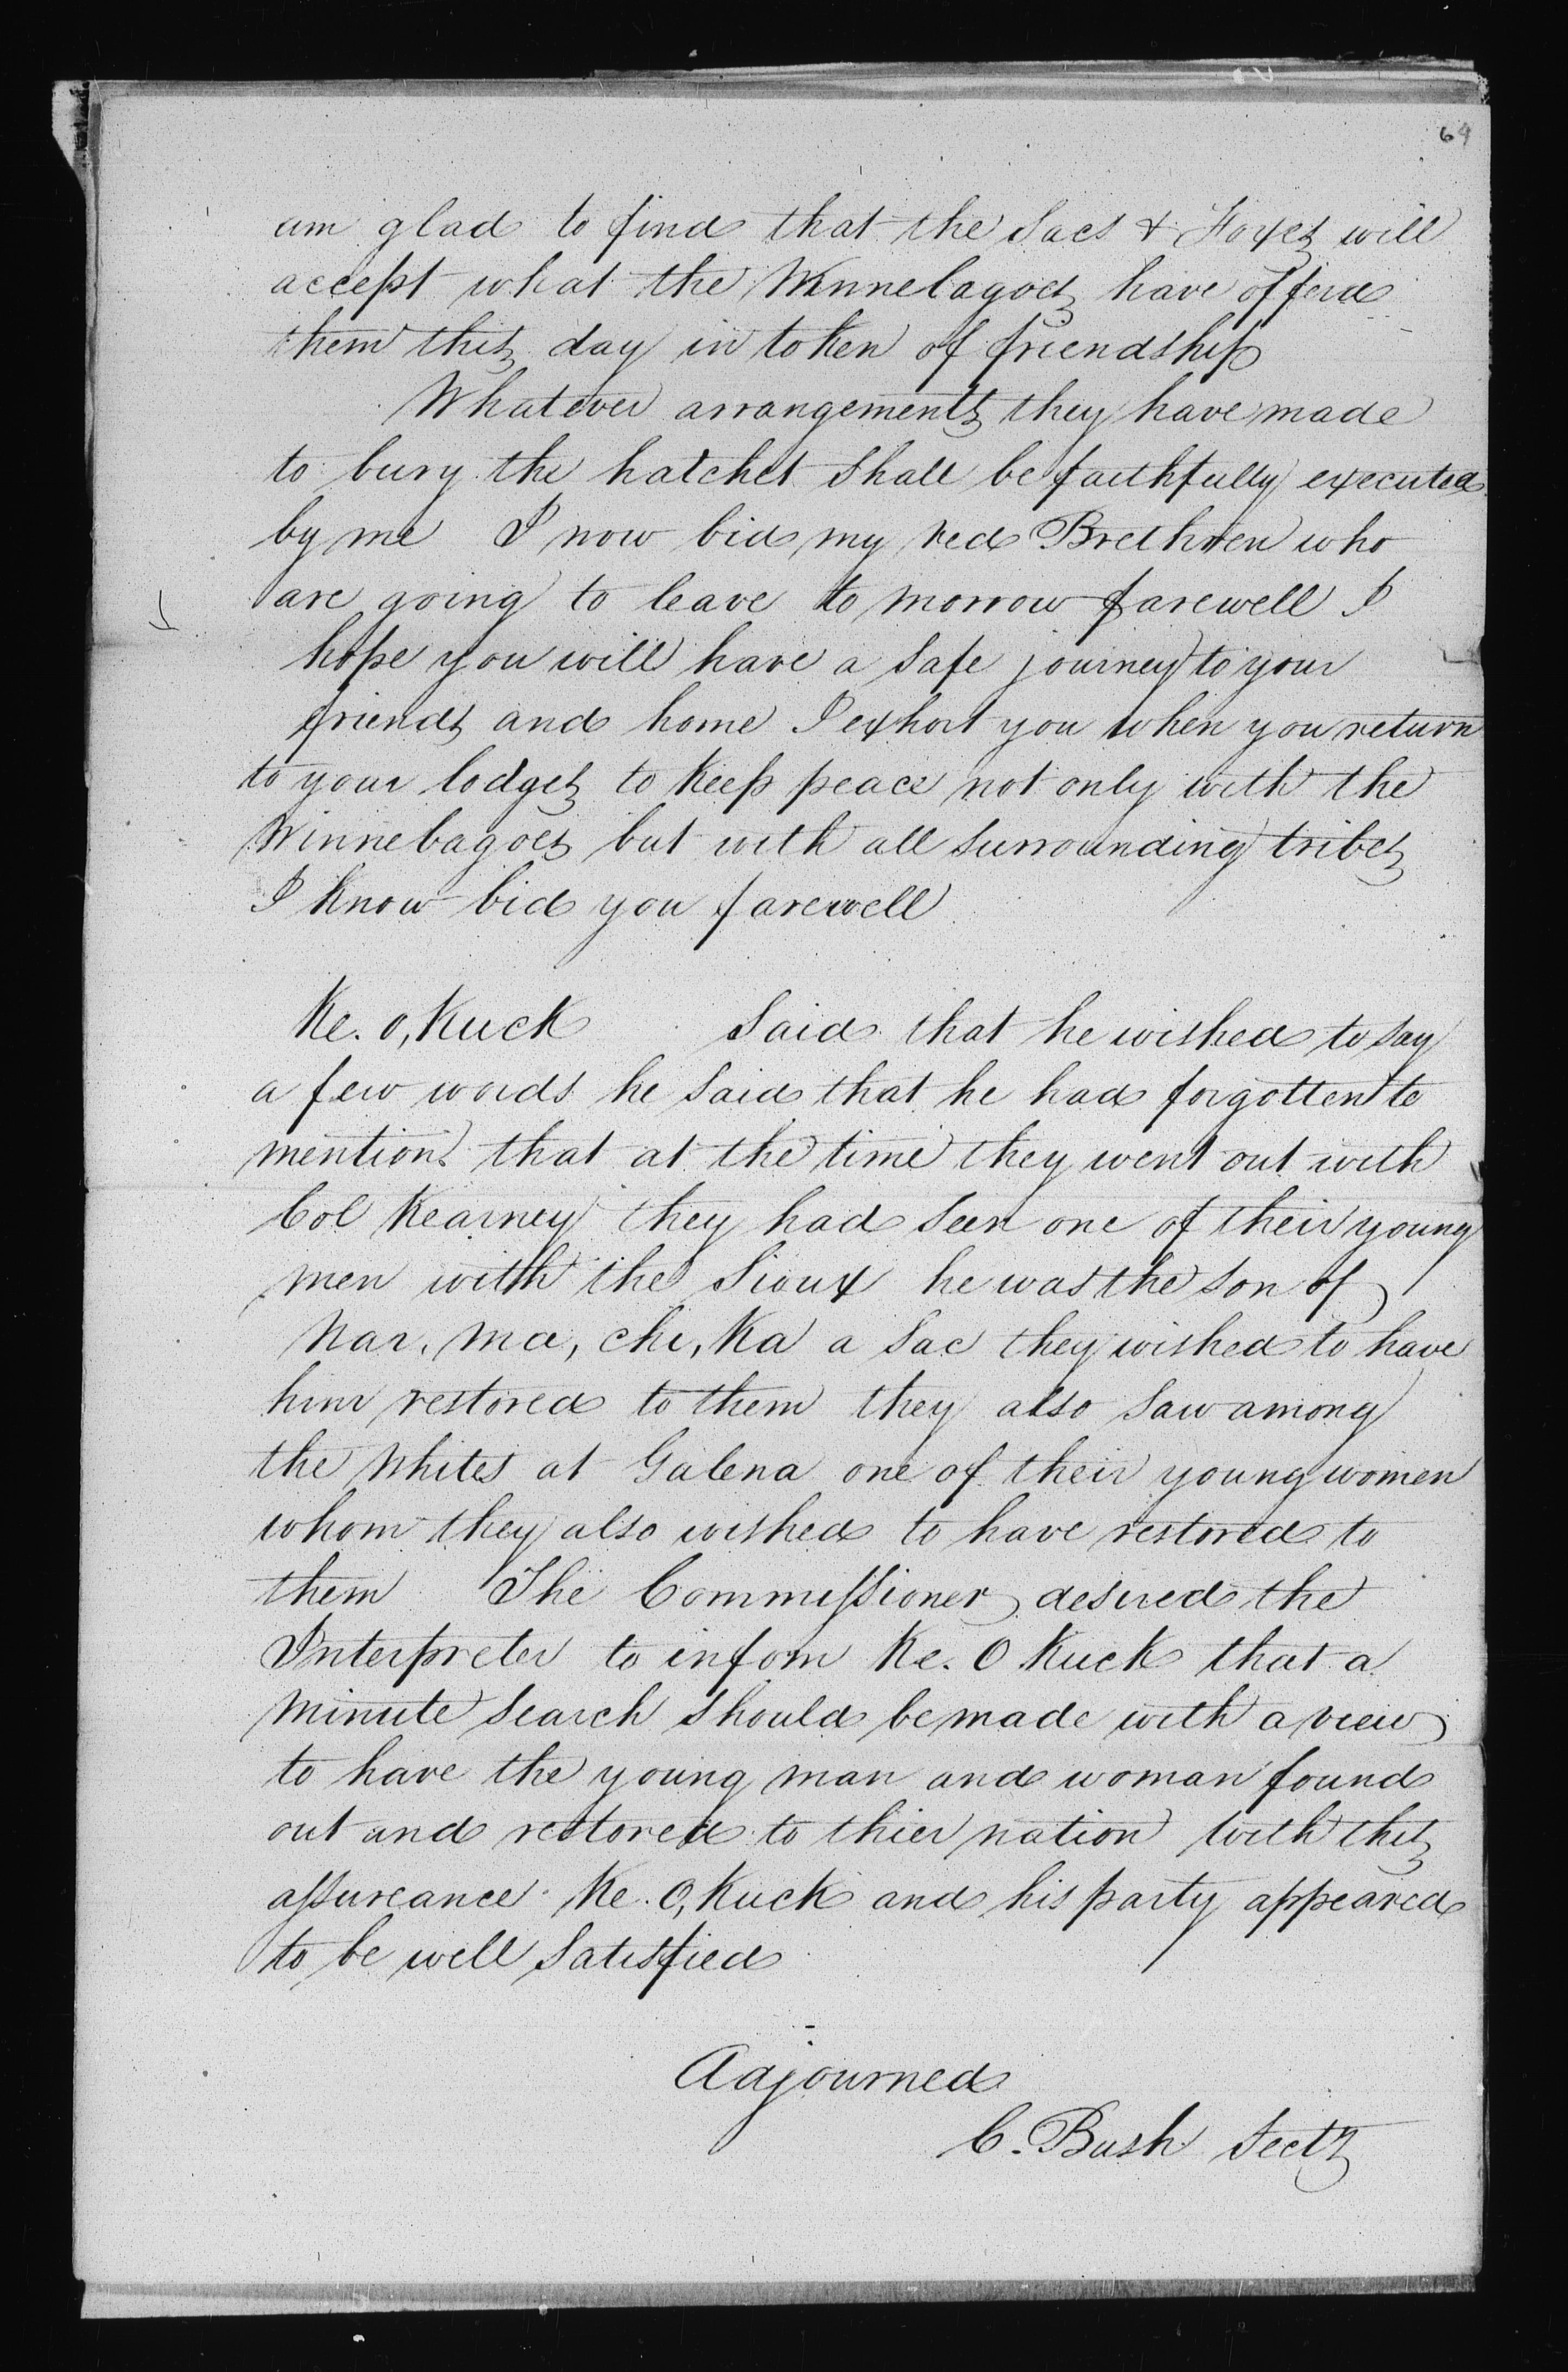 64
am glad to find that the Sacs & Foxes will
accept what the Winnebagoes have offerd
them this day in token of friendship
Whatever arrangements they have made
to bury the hatchet shall be faithfully executed
by me I now bid my red Brethren who
are going to leave to morrow farewell I
hope you will have a safe journey to your
friends and home I exhort you when you return
to your lodges to keep peace not only with the
Winnebagoes but with all surrounding tribes
I know bid you farewell
Ke. O, Kuck Said that he wished to say
a few words he said that he had forgotten to
mention that at the time they went out with
Col Kearney they had seen one of their young
men with the Sioux he was the son of
Nar, ma, che, Ka a Sac they wished to have
him restored to them they also saw among
the Whites at Galena one of their young women
whom they also wished to have restored to
them The Commissioner desired the
Interpreter to infom Ke. O Kuck that a
minute search should be made with a view
to have the young man and woman found
out and restored to thier nation with this
assureance Ke. O, Kuck and his party appeared
to be well satisfied
Adjourned
C. Bush Secty